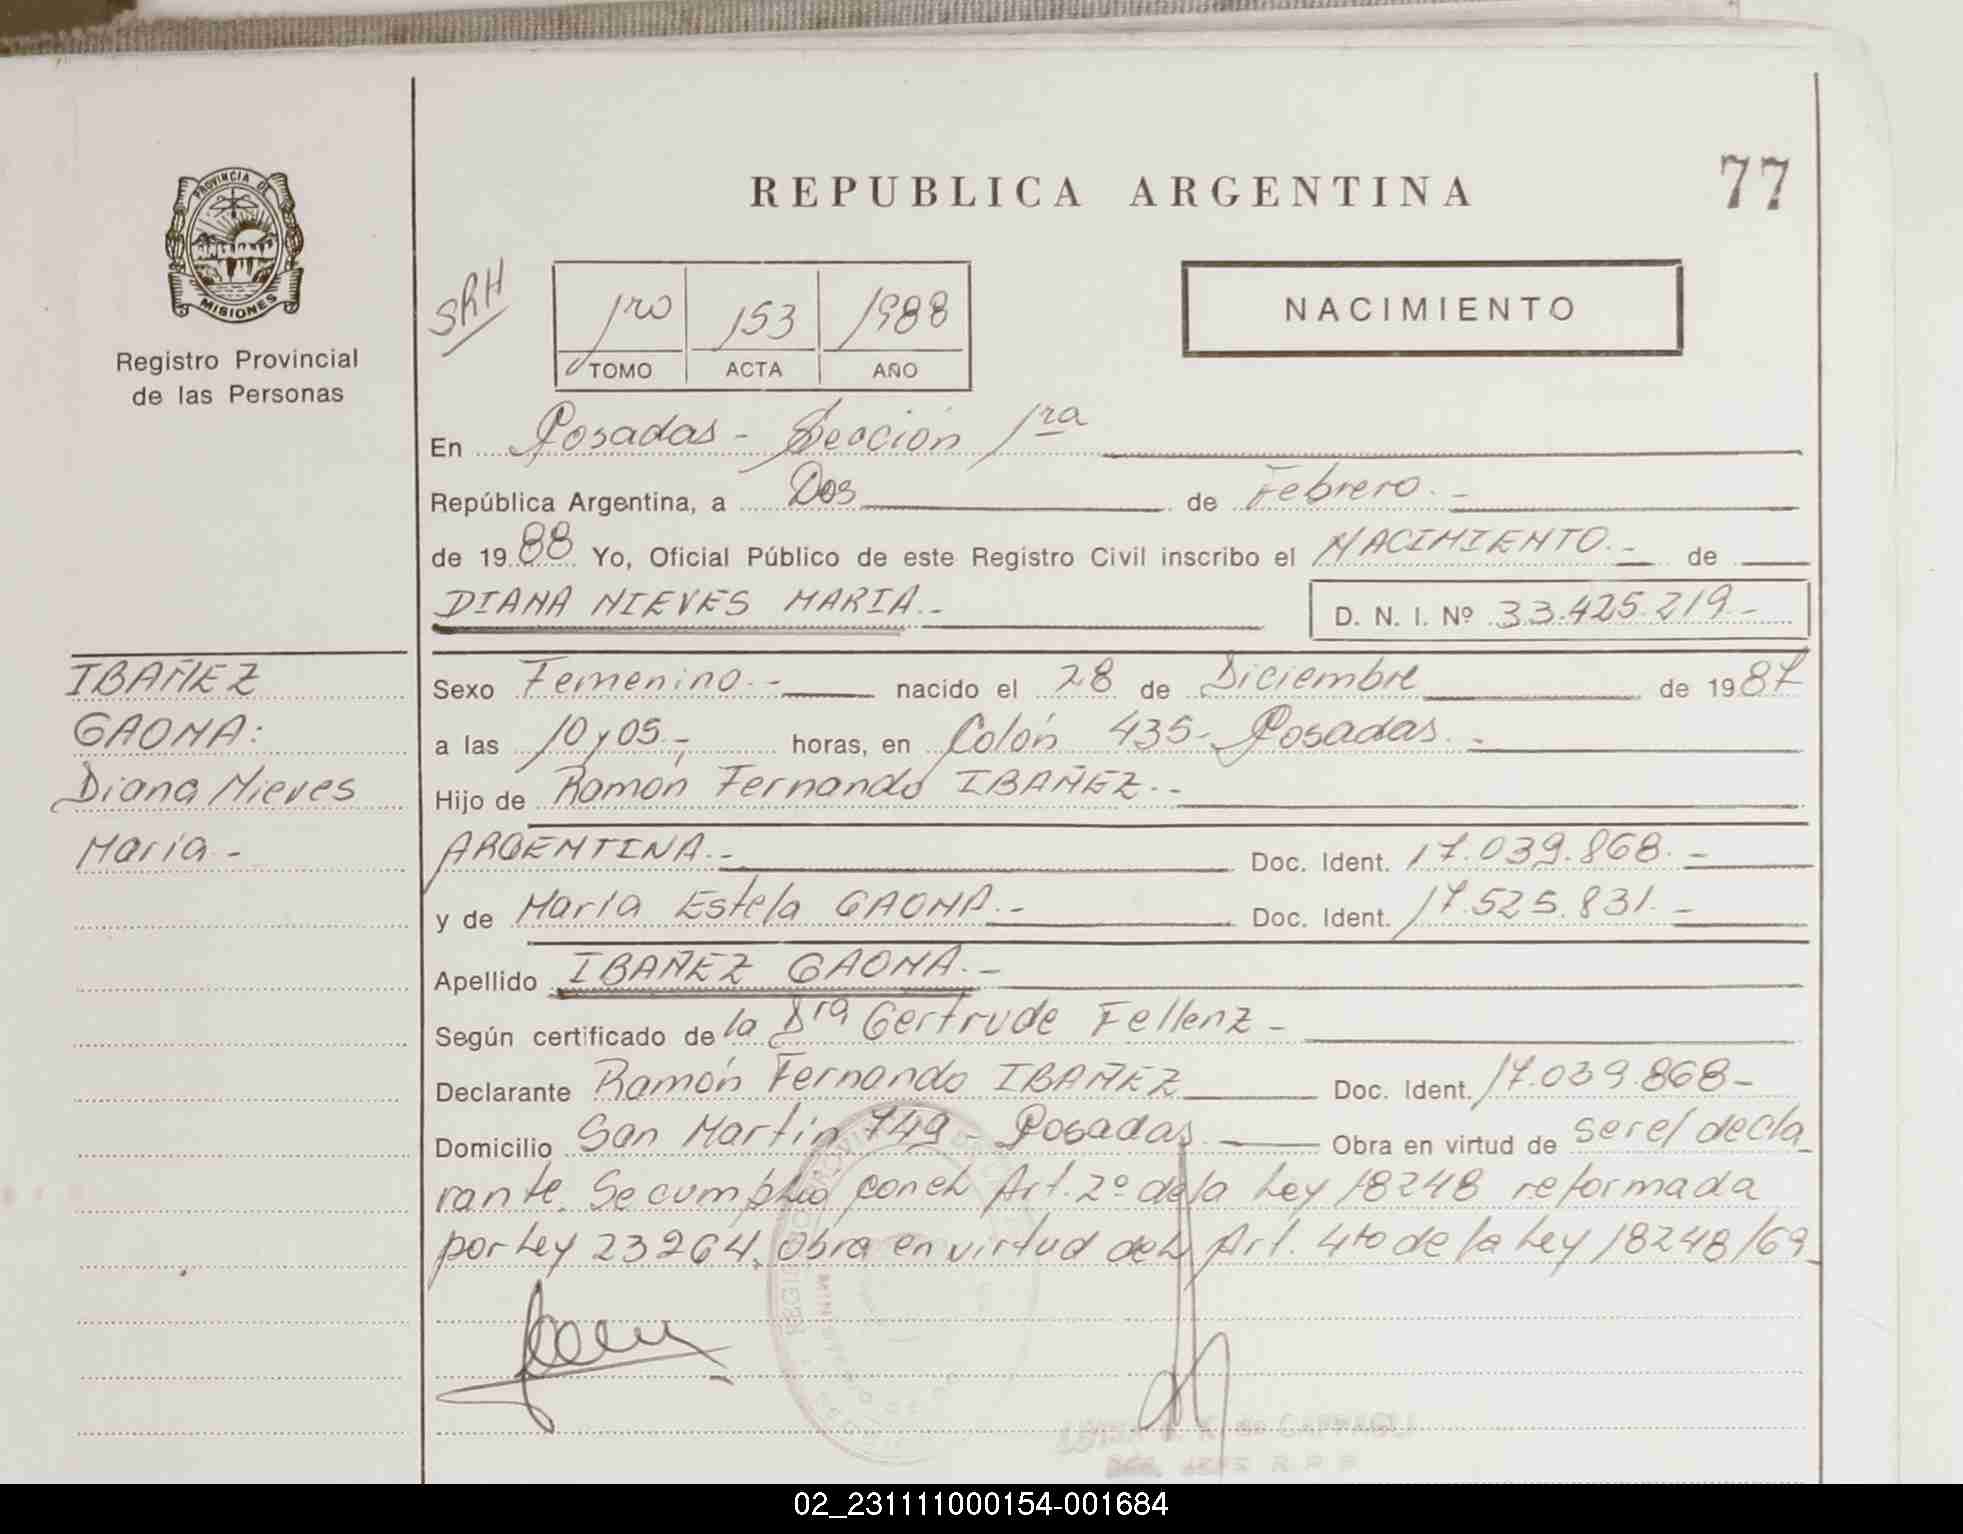 PROVINCIA DE
MISIONES
Registro Provincial
de las Personas
REPUBLICA ARGENTINA
77
SRH
1ro 153 1988
TOMO ACTA AÑO
NACIMIENTO
En Posadas - Sección 1ra
República Argentina, a Dos de Febrero.-
de 1988 Yo, Oficial Público de este Registro Civil inscribo el NACIMIENTO.- de
DIANA NIEVES MARIA.-
D. N. I. Nº 33.425.219-
IBAÑEZ
GAONA:
Diana Nieves
María -
Sexo Femenino.- nacido el 28 de Diciembre de 1987
a las 10 y 05.- horas, en Colón 435- Posadas.-
Hijo de Ramón Fernando IBAÑEZ.-
ARGENTINA.- Doc. Ident. 17.039.868.-
y de María Estela GAONA.- Doc. Ident. 17.525.831.-
Apellido IBAÑEZ GAONA.-
Según certificado de la Dra Gertrude Fellenz -
Declarante Ramón Fernando IBAÑEZ Doc. Ident. 17.039.868-
Domicilio San Martín 749 - Posadas. Obra en virtud de ser el decla
rante. Se cumplió con el Art. 2º de la Ley 18248 reformada
por Ley 23264. Obra en virtud del Art. 4to de la Ley 18248/69
02_231111000154-001684